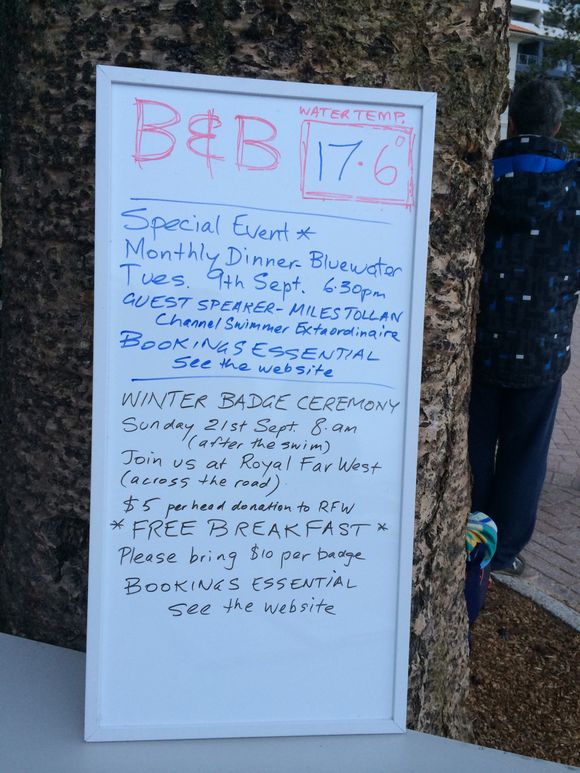 B & B
WATER TEMP.
17.6°
Special Event *
Monthly Dinner - Bluewater
Tues. 9th Sept. 6:30pm
GUEST SPEAKER - MILES TOLLAN
Channel Swimmer Extaordinaire
BOOKINGS ESSENTIAL
See the website
WINTER BADGE CEREMONY
Sunday 21st Sept. 8.am
(after the swim)
Join us at Royal Far West
(across the road)
$5 per head donation to RFW
* FREE BREAKFAST *
Please bring $10 per badge
BOOKINGS ESSENTIAL
See the website